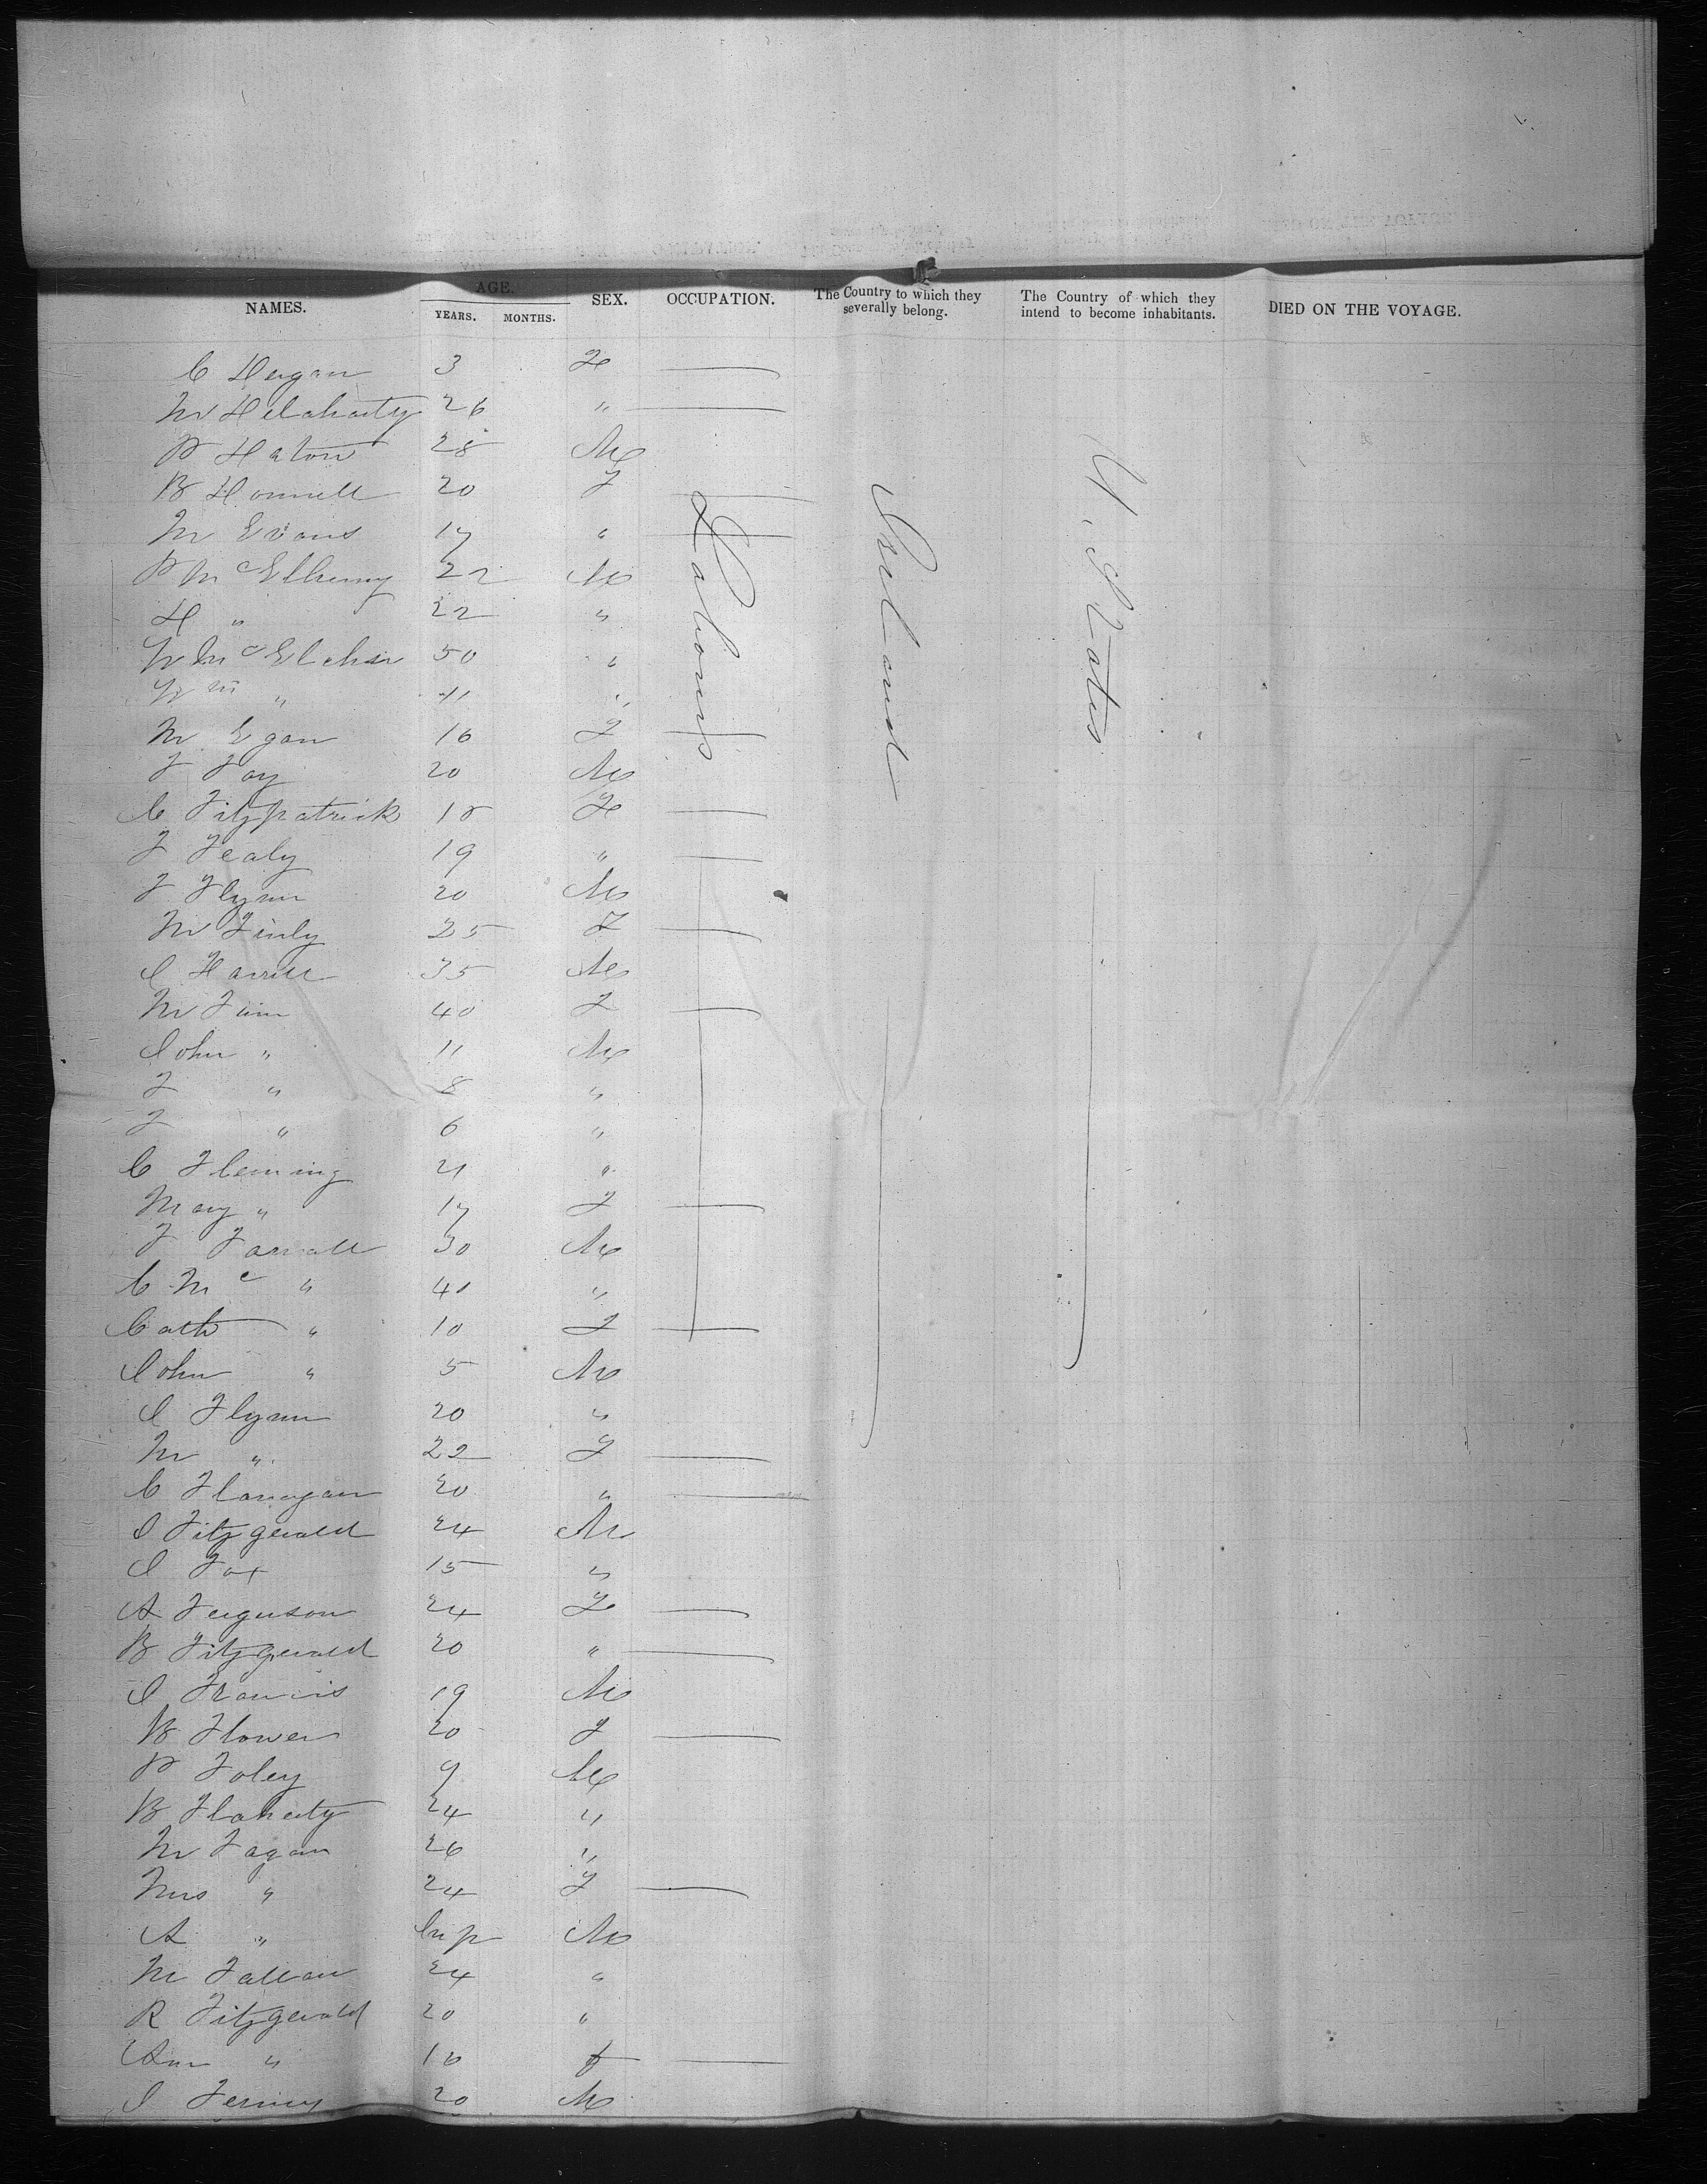 NAMES. AGE. YEARS. MONTHS. SEX. OCCUPATION. The Country to which they severally belong. The Country of which they intend to become inhabitants. DIED ON THE VOYAGE.
Labourers
Ireland
U. States
C 3 Fe
M 26 "
P 28 M
B 20 F
M Evans 17 "
P McElhenny 22 M
H " 22 "
50 "
Wm " 11 "
M Egan 16 F
F Foy 20 M
C Fitzpatrick 18 Fe
F Fealy 19 "
F Flynn 20 M
M Finly 25 F
35 M
M 40 F
John " 11 M
" 8 "
" 6 "
C Fleming 21 "
Mary " 17 F
F Farrall 30 M
C Mc " 40 "
Cath " 10 F
John " 5 M
J Flynn 20 "
M " 22 F
C Flanagan 20 "
J Fitzgerald 24 M
J Fox 15 "
A Ferguson 24 Fe
B Fitzgerald 20 "
J Francis 19 M
B Flower 20 F
P Foley 9 M
B Flaherty 24 "
M Fagan 26 "
Mrs " 24 F
A " Inf M
M Fallan 24 "
R Fitzgerald 20 "
Ann " 18 f
J 20 M